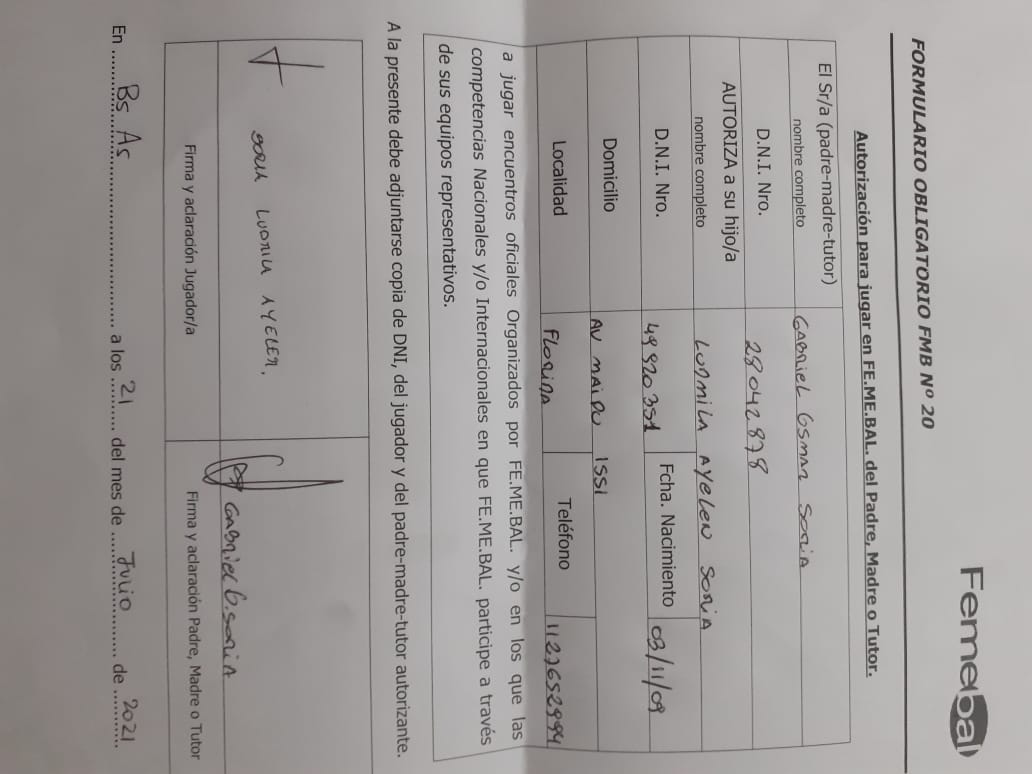 Femebal
FORMULARIO OBLIGATORIO FMB Nº 20
Autorización para jugar en FE.ME.BAL. del Padre, Madre o Tutor.
El Sr/a (padre-madre-tutor)
nombre completo
GABRIEL OSMAR SORIA
D.N.I. Nro.
28042878
AUTORIZA a su hijo/a
nombre completo
LUDMILA AYELEN SORIA
D.N.I. Nro.
49920351
Fcha. Nacimiento
03/11/09
Domicilio
AV MAIPU 1551
Localidad
FLORIDA
Teléfono
1127652994
a jugar encuentros oficiales Organizados por FE.ME.BAL. y/o en los que las
competencias Nacionales y/o Internacionales en que FE.ME.BAL. participe a través
de sus equipos representativos.
A la presente debe adjuntarse copia de DNI, del jugador y del padre-madre-tutor autorizante.
SORIA LUDMILA AYELEN.
GABRIEL O. SORIA
Firma y aclaración Jugador/a
Firma y aclaración Padre, Madre o Tutor
En Bs As a los 21 del mes de Julio de 2021